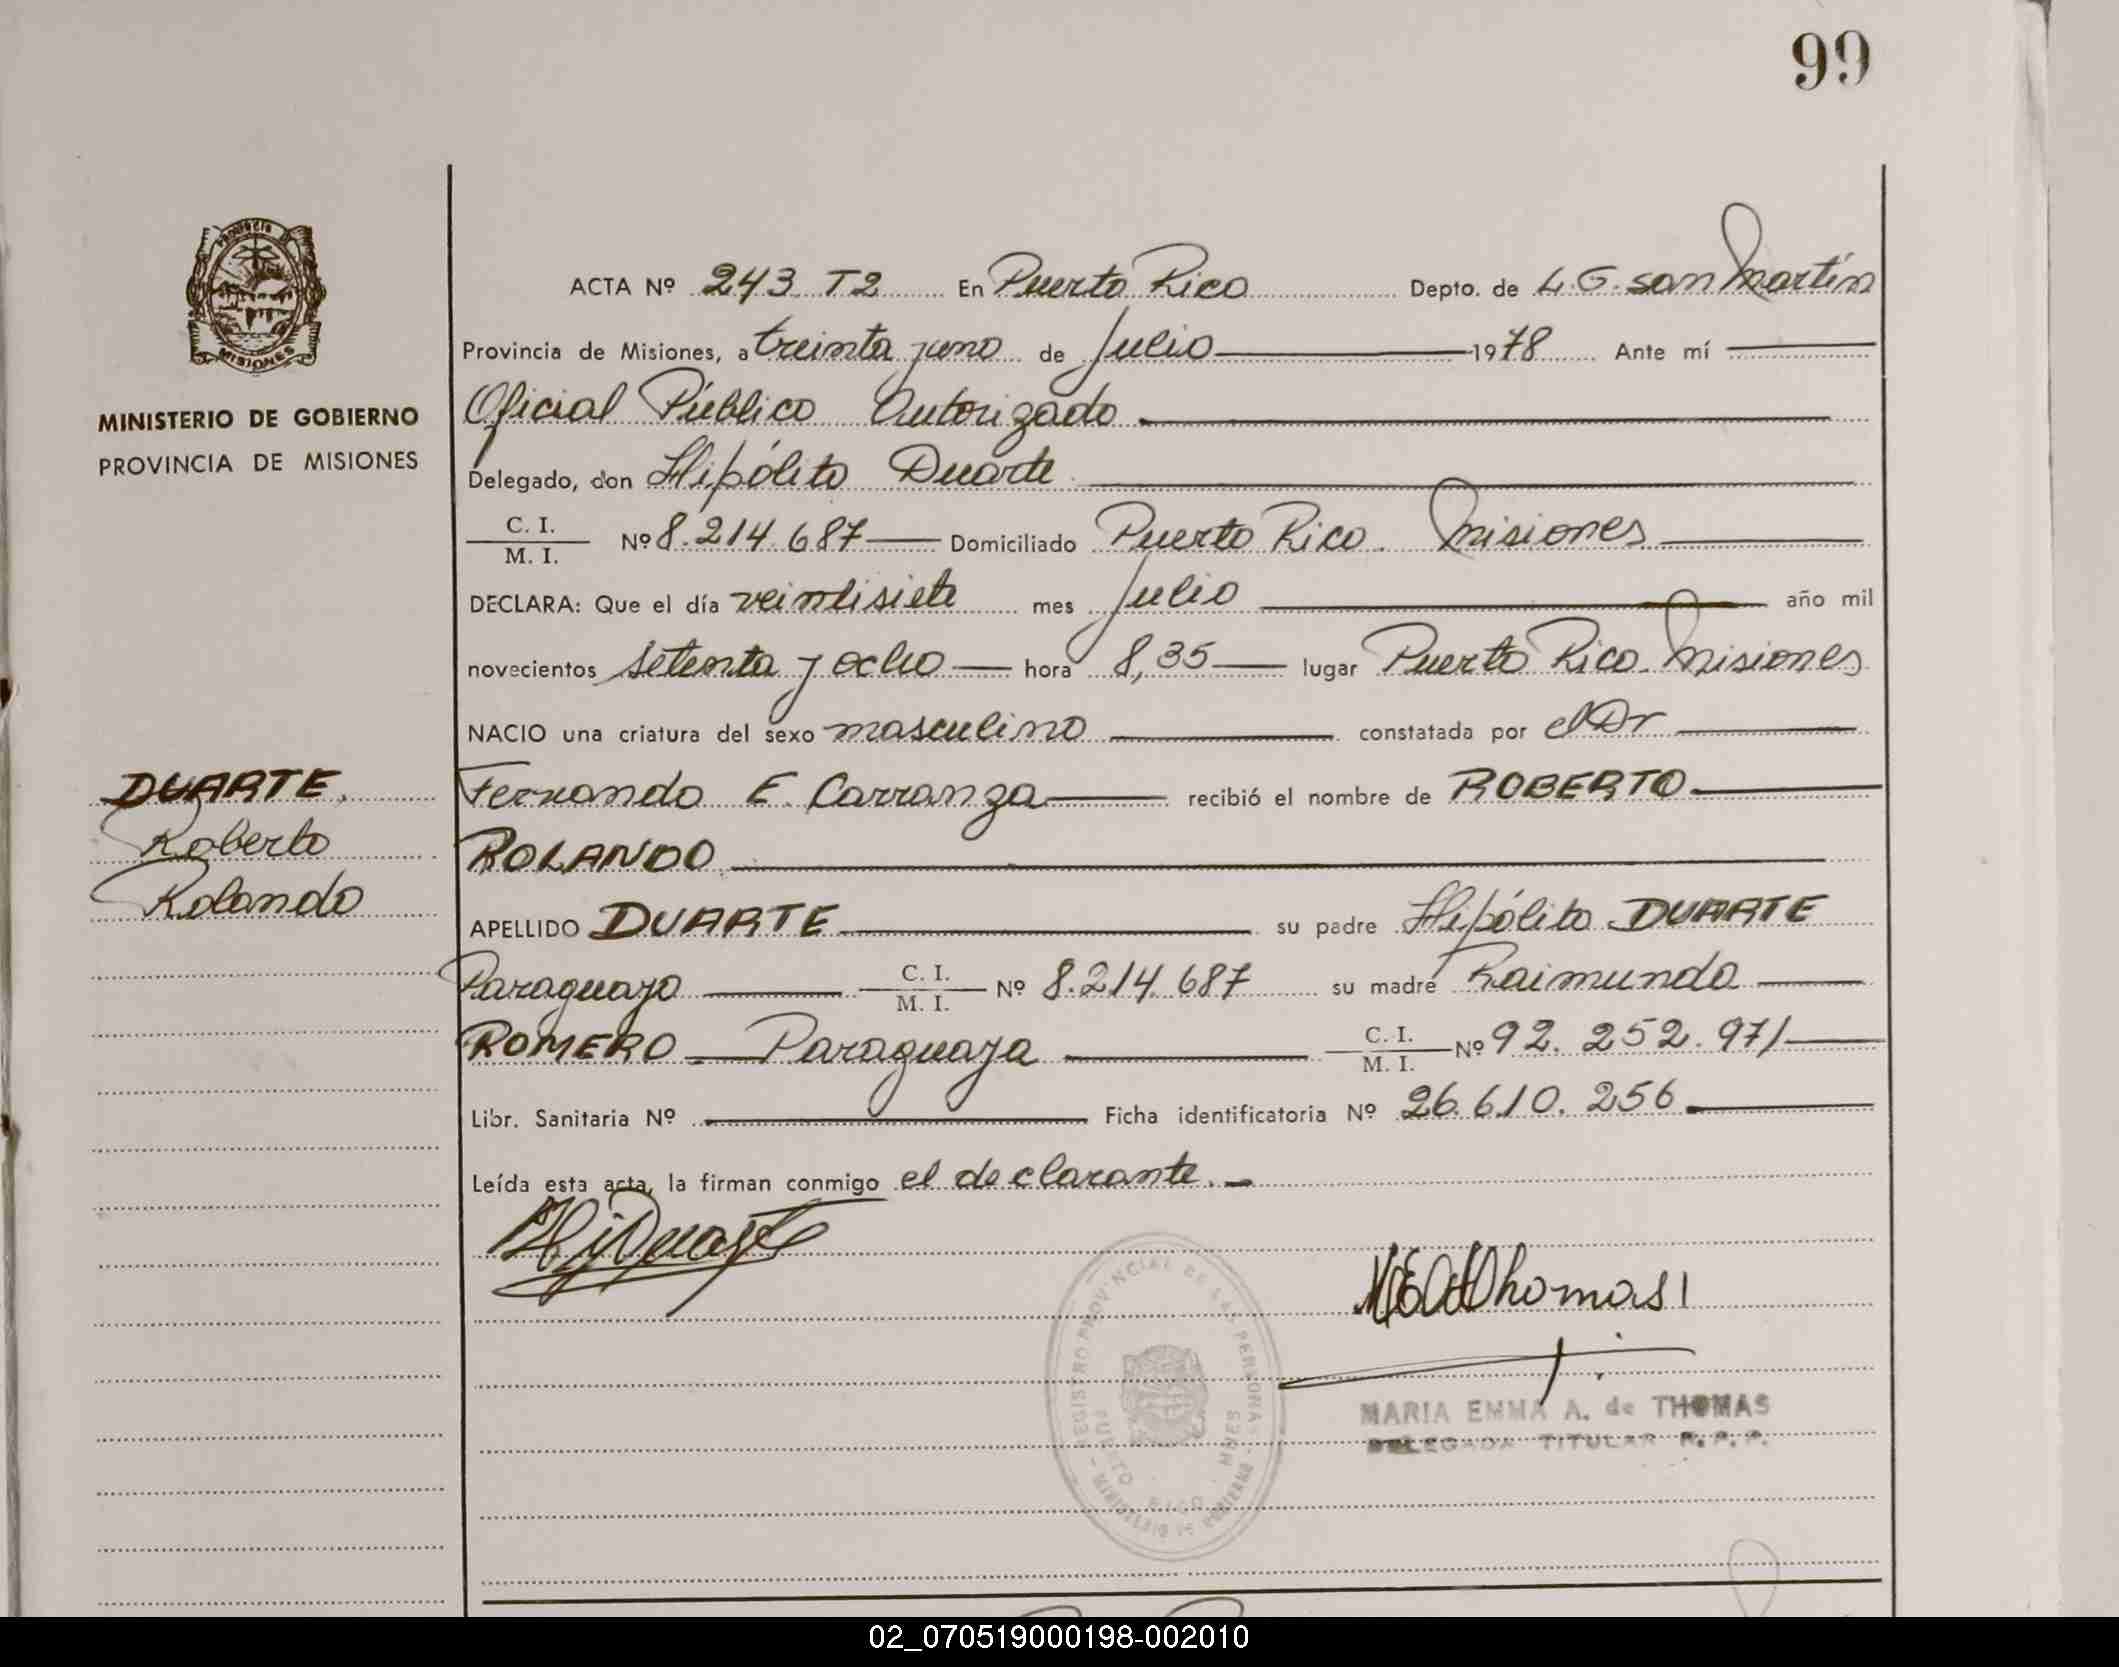 99
PROVINCIA
MISIONES
MINISTERIO DE GOBIERNO
PROVINCIA DE MISIONES
DUARTE.
Roberto
Rolando
ACTA Nº 243 T2 En Puerto Rico Depto. de L. G. san Martín
Provincia de Misiones, a treinta y uno de Julio 1978 Ante mí
Oficial Público Autorizado
Delegado, don Hipólito Duarte
C. I.
M. I. Nº 8.214.687 Domiciliado Puerto Rico. Misiones
DECLARA: Que el día veintisiete mes Julio año mil
novecientos setenta y ocho hora 8,35 lugar Puerto Rico. Misiones
NACIO una criatura del sexo masculino constatada por el Dr
Fernando E. Carranza recibió el nombre de ROBERTO
ROLANDO
APELLIDO DUARTE su padre Hipólito DUARTE
Paraguayo C. I. M. I. Nº 8.214.687 su madre Raimunda
ROMERO - Paraguaya C. I. M. I. Nº 92.252.971
Libr. Sanitaria Nº Ficha identificatoria Nº 26.610.256
Leída esta acta, la firman conmigo el declarante.
REGISTRO PROVINCIAL DE LAS PERSONAS
PUERTO RICO MNES
MINISTERIO DE GOBIERNO
MARIA EMMA A. de THOMAS
DELEGADA TITULAR R. P. P.
02_070519000198-002010